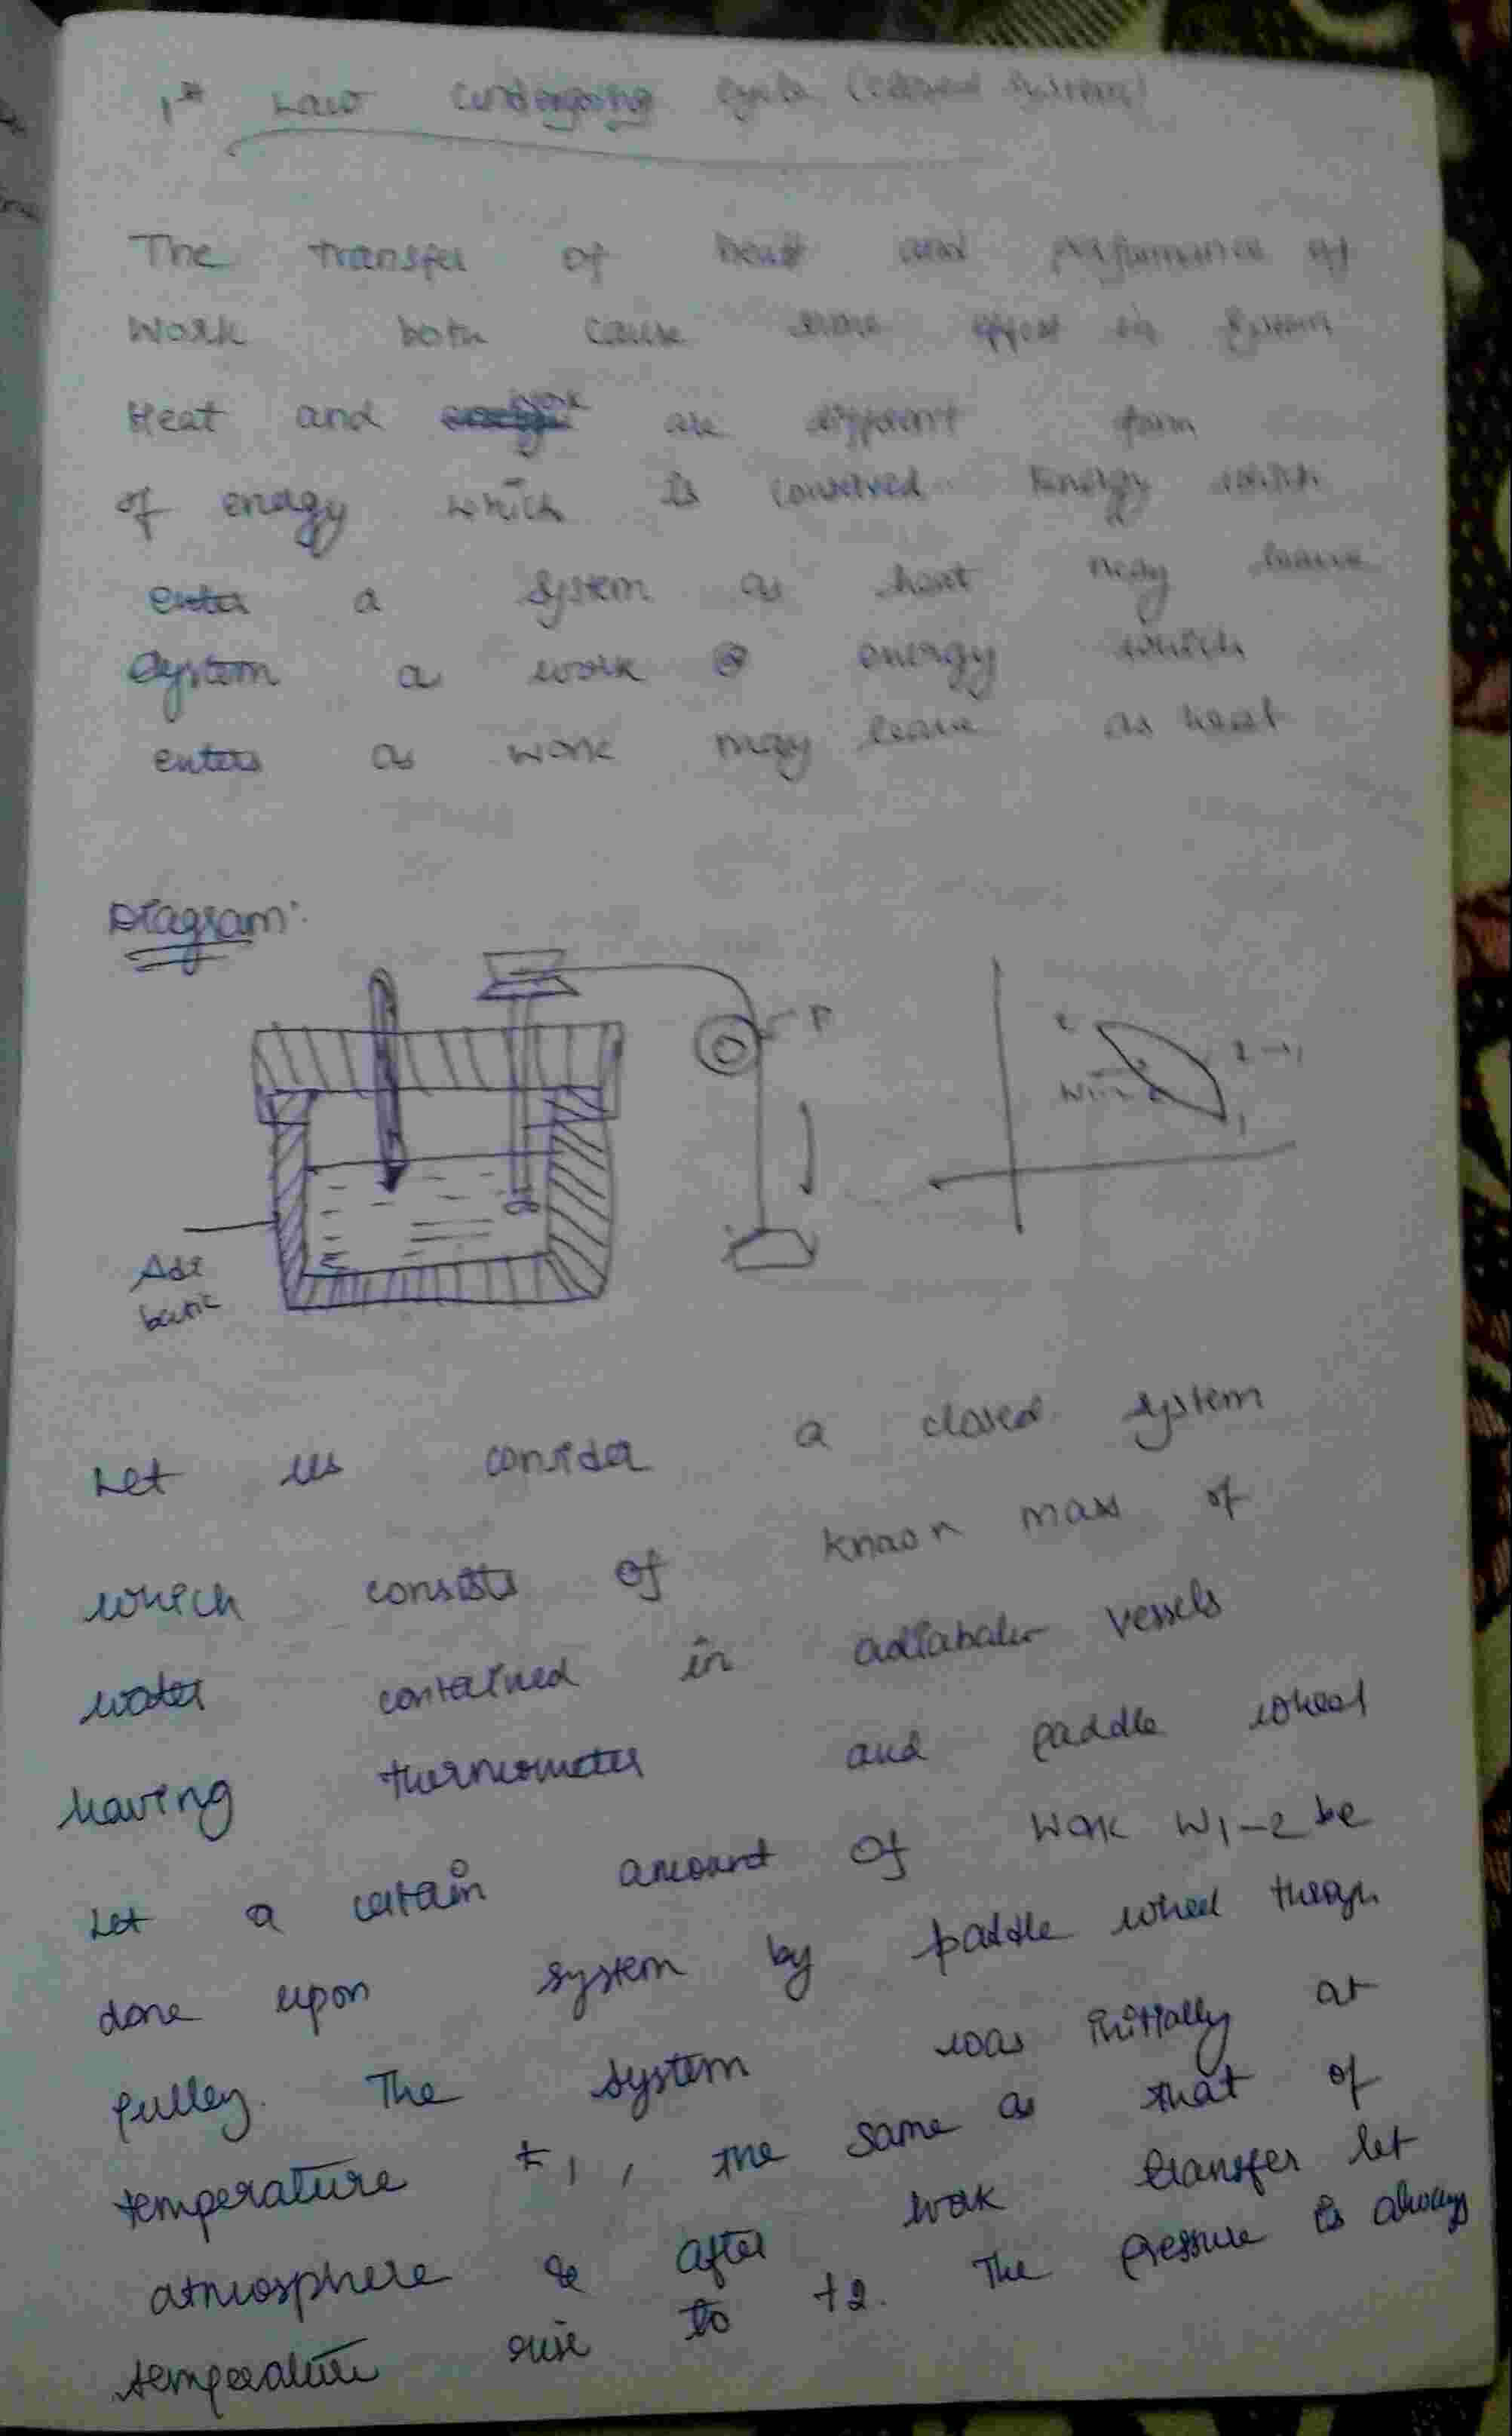 1st Law undergoing cycle (closed system)
The transfer of heat and performance of
work both cause same effect in system
Heat and work are different form
of enegy which is conserved. Energy which
enter a system as heat may leave
system a work & energy which
enters as work may leave as heat
Diagram:
P
2
2-1
W1-2
1
Adi
batic
Let us consider a closed system
which consists of known mass of
water contained in adiabatic vessels
having thermometer and paddle wheel
Let a certain amount of work W1-2 be
done upon system by paddle wheel
pulley. The system was initially at
temperature t1, the same as that of
atmosphere & after work transfer let
temperature rise to t2. The pressure is always